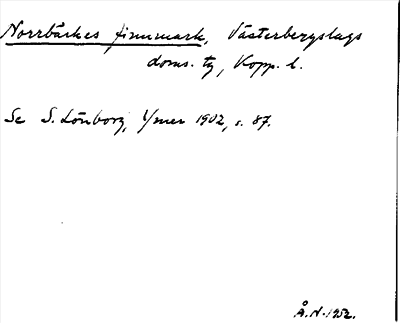 Norrbärkes finnmark, Västerbergslags
doms. tg, Kopp. l.
Se S. Lönborg, Ymer 1902, s. 87.
Å.N. 1952.